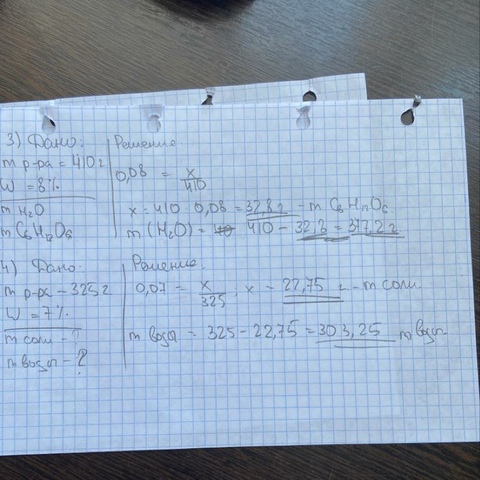 3) Дано:
m р-ра = 410 г
W = 8%
m H₂O
m C₆H₁₂O₆
Решение
0,08 = x/410
x = 410 · 0,08 = 32,8 г - m C₆H₁₂O₆
m (H₂O) = 410 - 32,8 = 377,2 г
4) Дано:
m р-ра - 325 г
W = 7%
m соли - ?
m воды - ?
Решение.
0,07 = x/325; x = 22,75 г - m соли.
m воды = 325 - 22,75 = 303,25 m воды